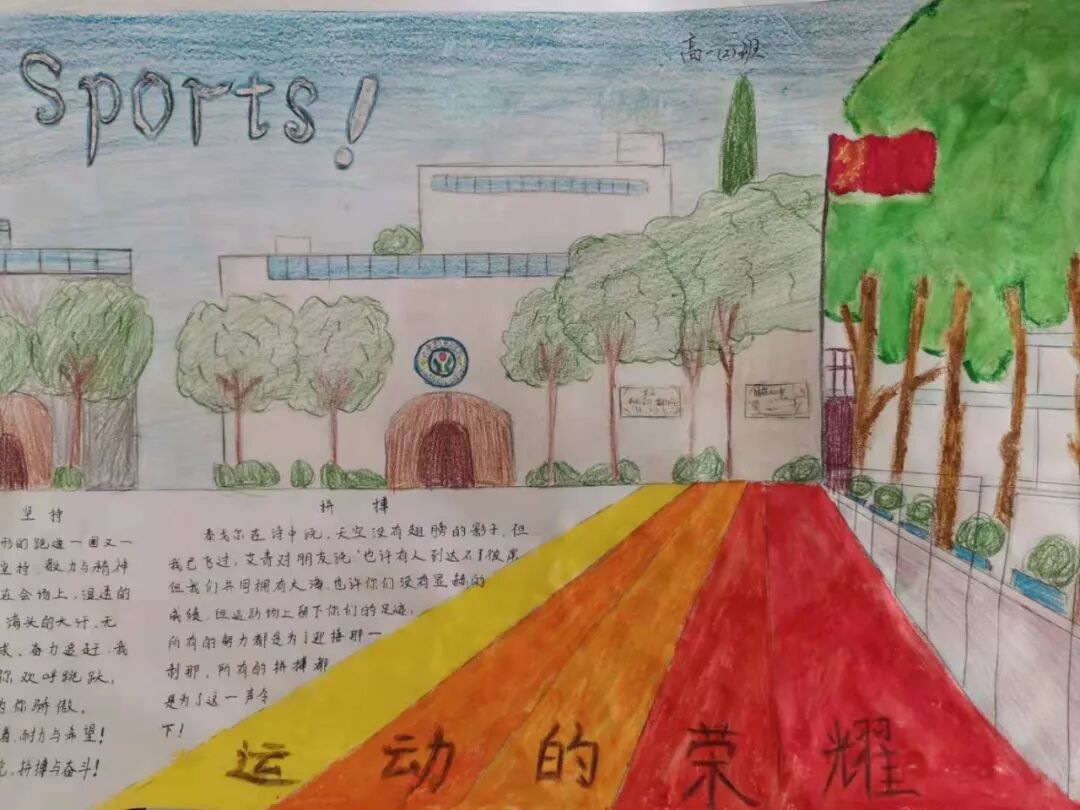 Sports!
高一(2)班
坚持
形的跑道一圈又一
坚持,毅力与精神
在会场上,湿透的
满头的大汗,无
求,奋力追赶,我
你欢呼跳跃,
为你骄傲。
着,耐力与希望!
拼搏与奋斗!
拼搏
泰戈尔在诗中说,天空没有翅膀的影子,但
我已飞过,艾青对朋友说,“也许有人到达不了彼岸
但我们共同拥有大海,也许你们没有显赫的
成绩,但运动场上留下你们的足迹,
所有的努力都是为了迎接那一
刹那,所有的拼搏都
是为了这一声令
下!
运动的荣耀